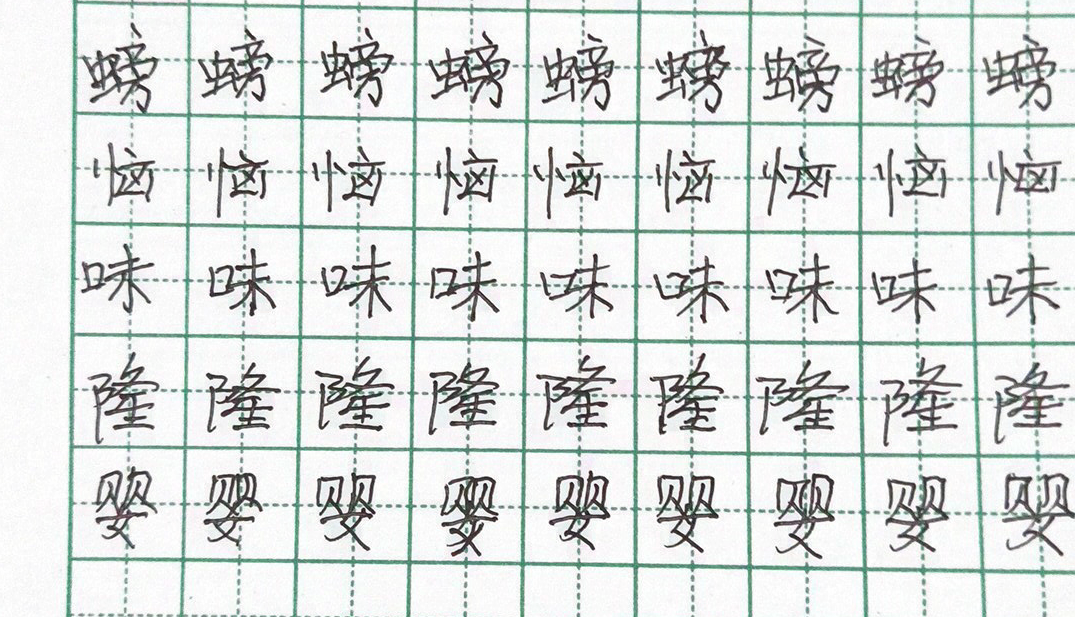 螃螃螃螃螃螃螃螃螃
恼恼恼恼恼恼恼恼恼
味味味味味味味味味
隆隆隆隆隆隆隆隆隆
婴婴婴婴婴婴婴婴婴